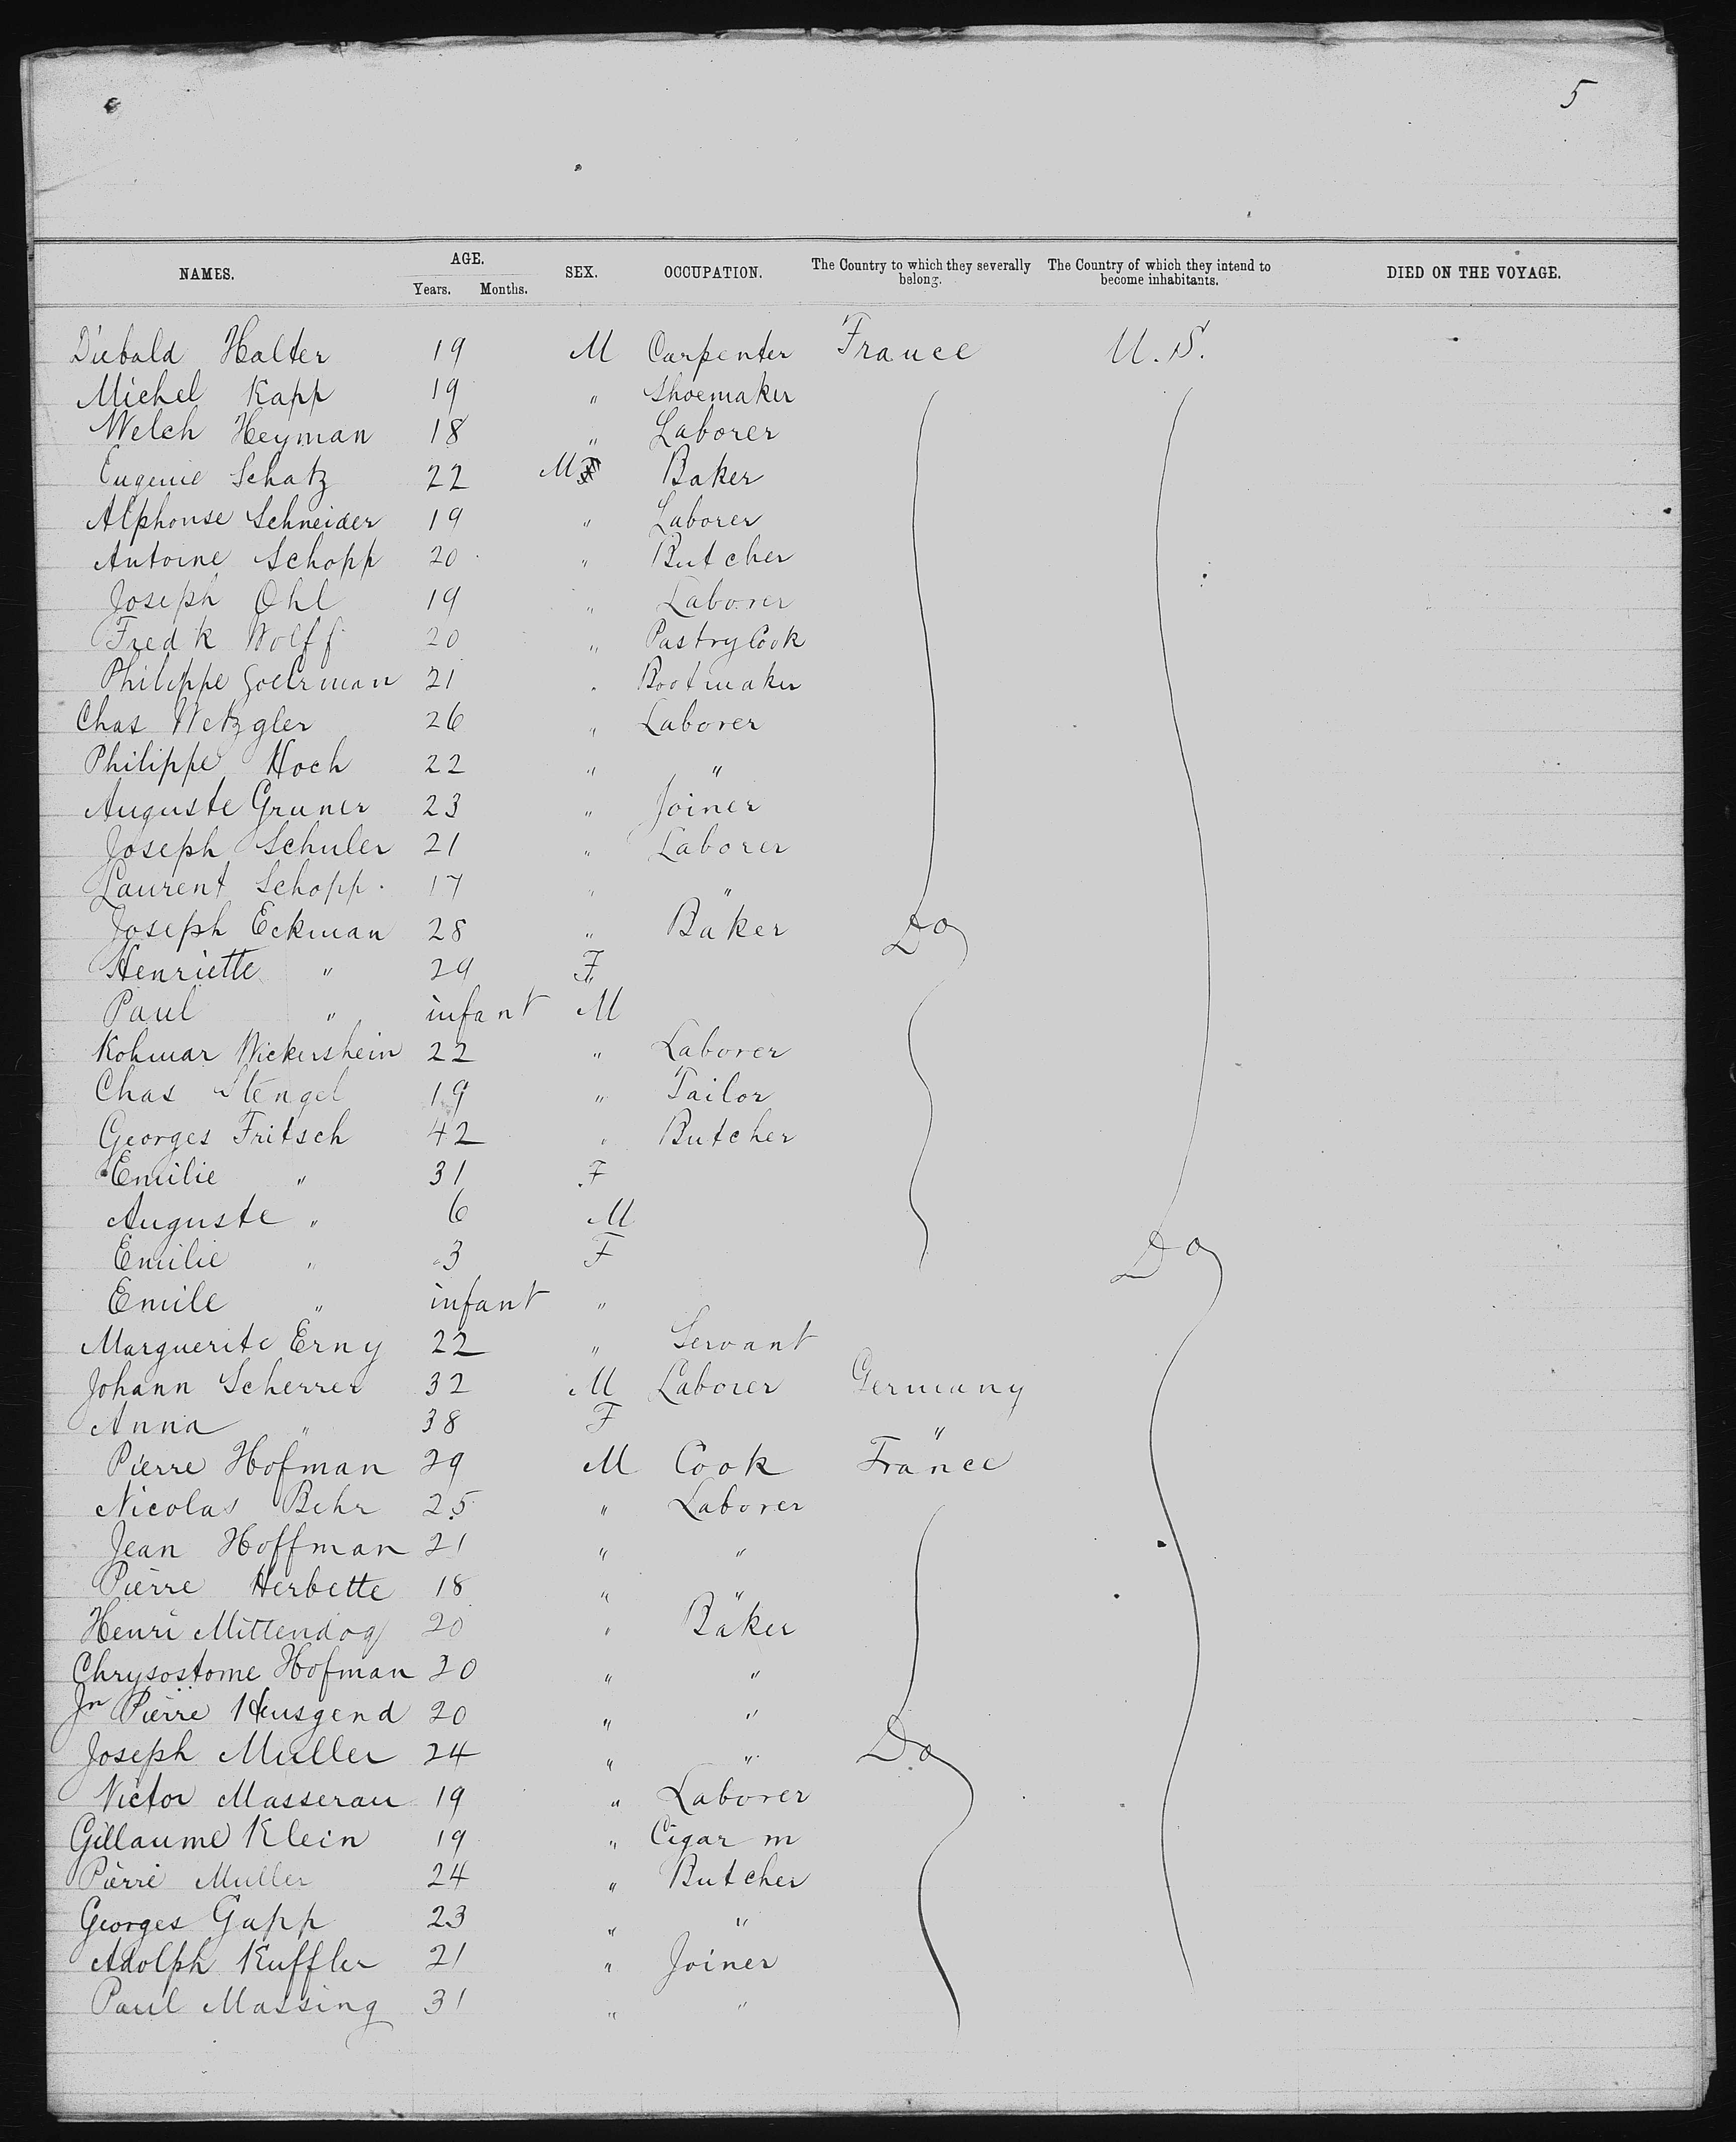 5
NAMES. AGE. Years. Months. SEX. OCCUPATION. The Country to which they severally belong. The Country of which they intend to become inhabitants. DIED ON THE VOYAGE.
Diebald Halter 19 M Carpenter France U.S.
Michel Kapp 19 " Shoemaker
Welch Heyman 18 " Laborer
Eugenie Schatz 22 M Baker
Alphonse Schneider 19 " Laborer
Antoine Schopp 20 " Butcher
Joseph Ohl 19 " Laborer
Fredk Wolff 20 " Pastry Cook
Philippe 21 " Bootmaker
Chas Wetzgler 26 " Laborer
Philippe Hoch 22 " "
Auguste Gruner 23 " Joiner
Joseph Schuler 21 " Laborer
Laurent Schopp. 17 " "
Joseph Eckman 28 " Baker Do
Henriette " 29 F
Paul " infant M
Kohmar Wickershein 22 " Laborer
Chas Stengel 19 " Tailor
Georges Fritsch 42 " Butcher
Emilie " 31 F
Auguste " 6 M
Emilie " 3 F Do
Emile " infant "
Marguerite Erny 22 " Servant
Johann Scherrer 32 M Laborer Germany
Anna " 38 F "
Pierre Hofman 29 M Cook France
Nicolas Behr 25 " Laborer
Jean Hoffman 21 " "
Pierre Herbette 18 " "
Henri Mittendog 20 " Baker
Chrysostome Hofman 20 " "
Jn Pierre Heusgend 20 " "
Joseph Muller 24 " " Do
Victor Masserau 19 " Laborer
Gillaume Klein 19 " Cigar m
Pierre Muller 24 " Butcher
Georges Gapp 23 " "
Adolph Kuffler 21 " Joiner
Paul Massing 31 " "